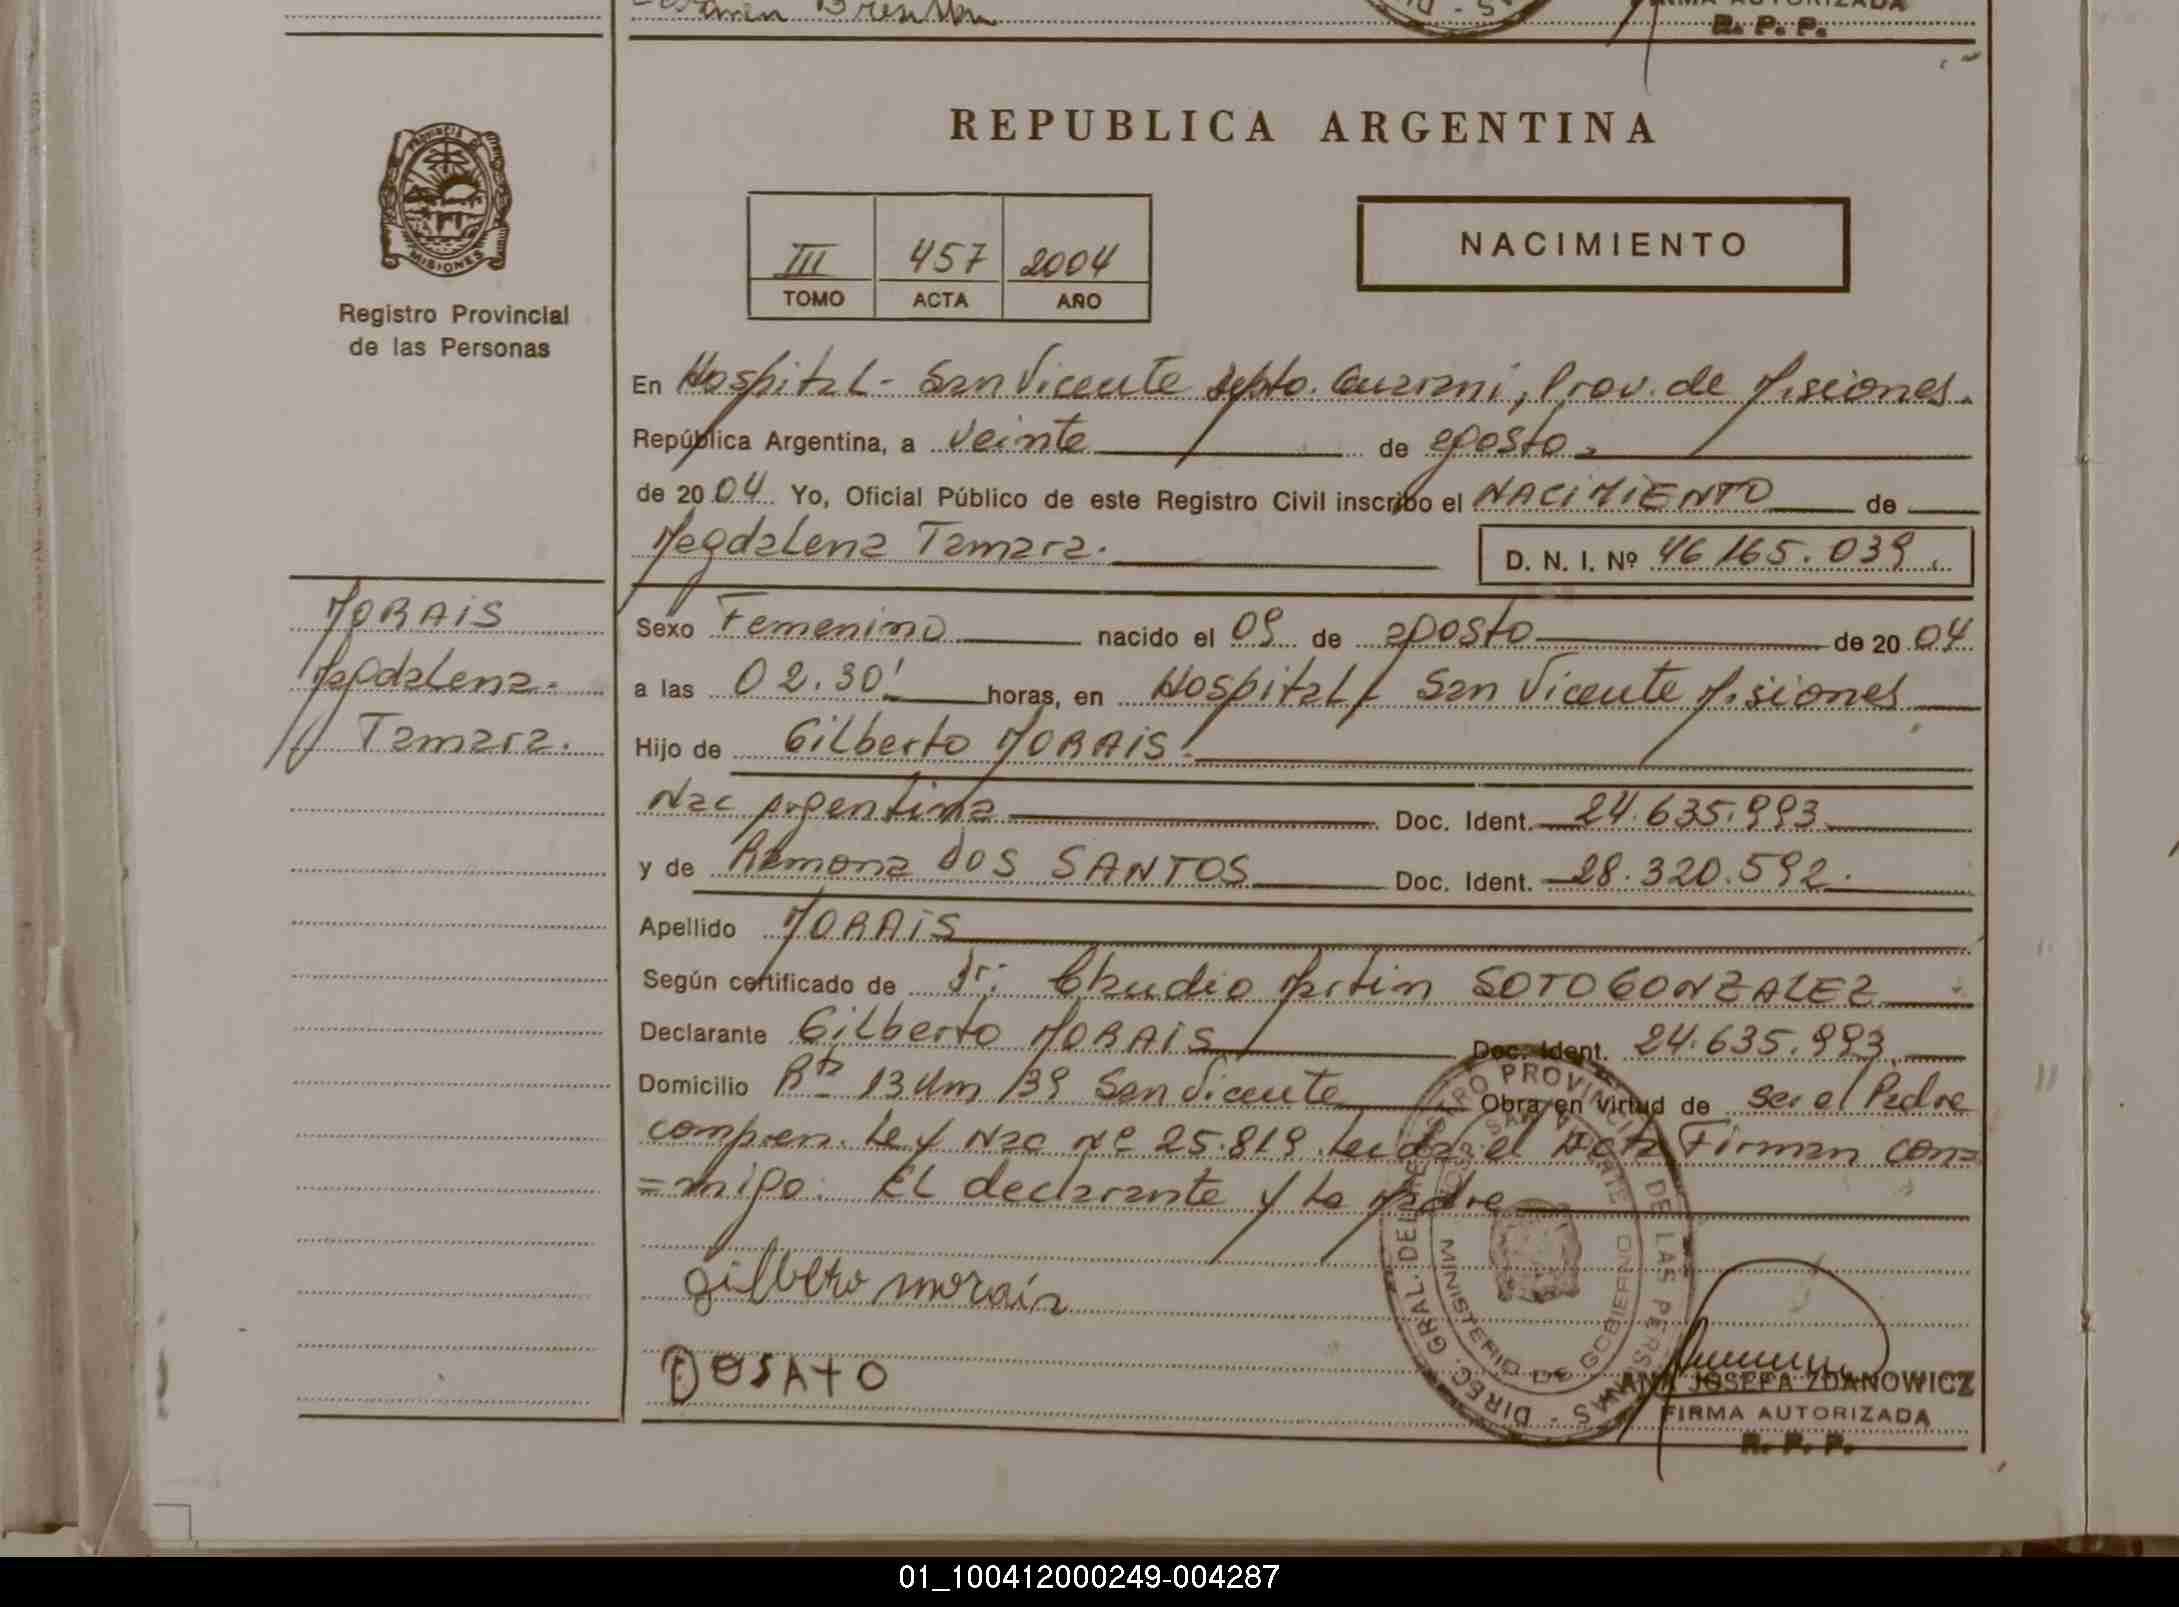 FIRMA AUTORIZADA
R. P. P.
PROVINCIA DE
MISIONES
Registro Provincial
de las Personas
REPUBLICA ARGENTINA
III 457 2004
TOMO ACTA AÑO
NACIMIENTO
En Hospital - San Vicente Depto. Guarani, Prov. de Misiones.
República Argentina, a veinte de agosto.
de 2004 Yo, Oficial Público de este Registro Civil inscribo el NACIMIENTO de
Magdalena Tamara.
D. N. I. Nº 46.165.039
MORAIS
Magdalena
Tamara.
Sexo Femenino nacido el 09 de agosto de 2004
a las 02.30' horas, en Hospital - San Vicente Misiones
Hijo de Gilberto MORAIS.
Nac Argentina Doc. Ident. 24.635.993
y de Ramona DOS SANTOS Doc. Ident. 28.320.592.
Apellido MORAIS
Según certificado de Dr: Claudio Martin SOTO GONZALEZ
Declarante Gilberto MORAIS Doc. Ident. 24.635.993.
Domicilio Rta 13 Km 139 San Vicente Obra en virtud de ser el Padre
compren. Ley Nac Nº 25.819. Leida el Acta Firman con=
=migo. El declarante y la Madre
gilberto morais
DOSATO
DIREC. GRAL. DEL REGISTRO PROVINCIAL DE LAS PERSONAS
MINISTERIO DE GOBIERNO
ANA JOSEFA ZDANOWICZ
FIRMA AUTORIZADA
R. P. P.
01_100412000249-004287